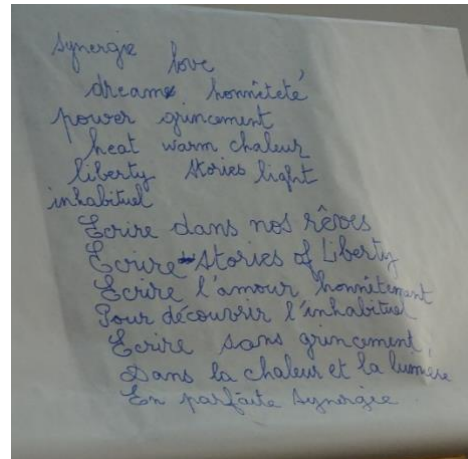 synergie love
dreams honnîteté
power grincement
heat warm chaleur
liberty stories light
inhabituel
Ecrire dans nos rêves
Ecrire stories of Liberty
Ecrire l'amour honnîtement
Pour découvrir l'inhabituel
Ecrire sans grincement
Dans la chaleur et la lumière
En parfaite synergie